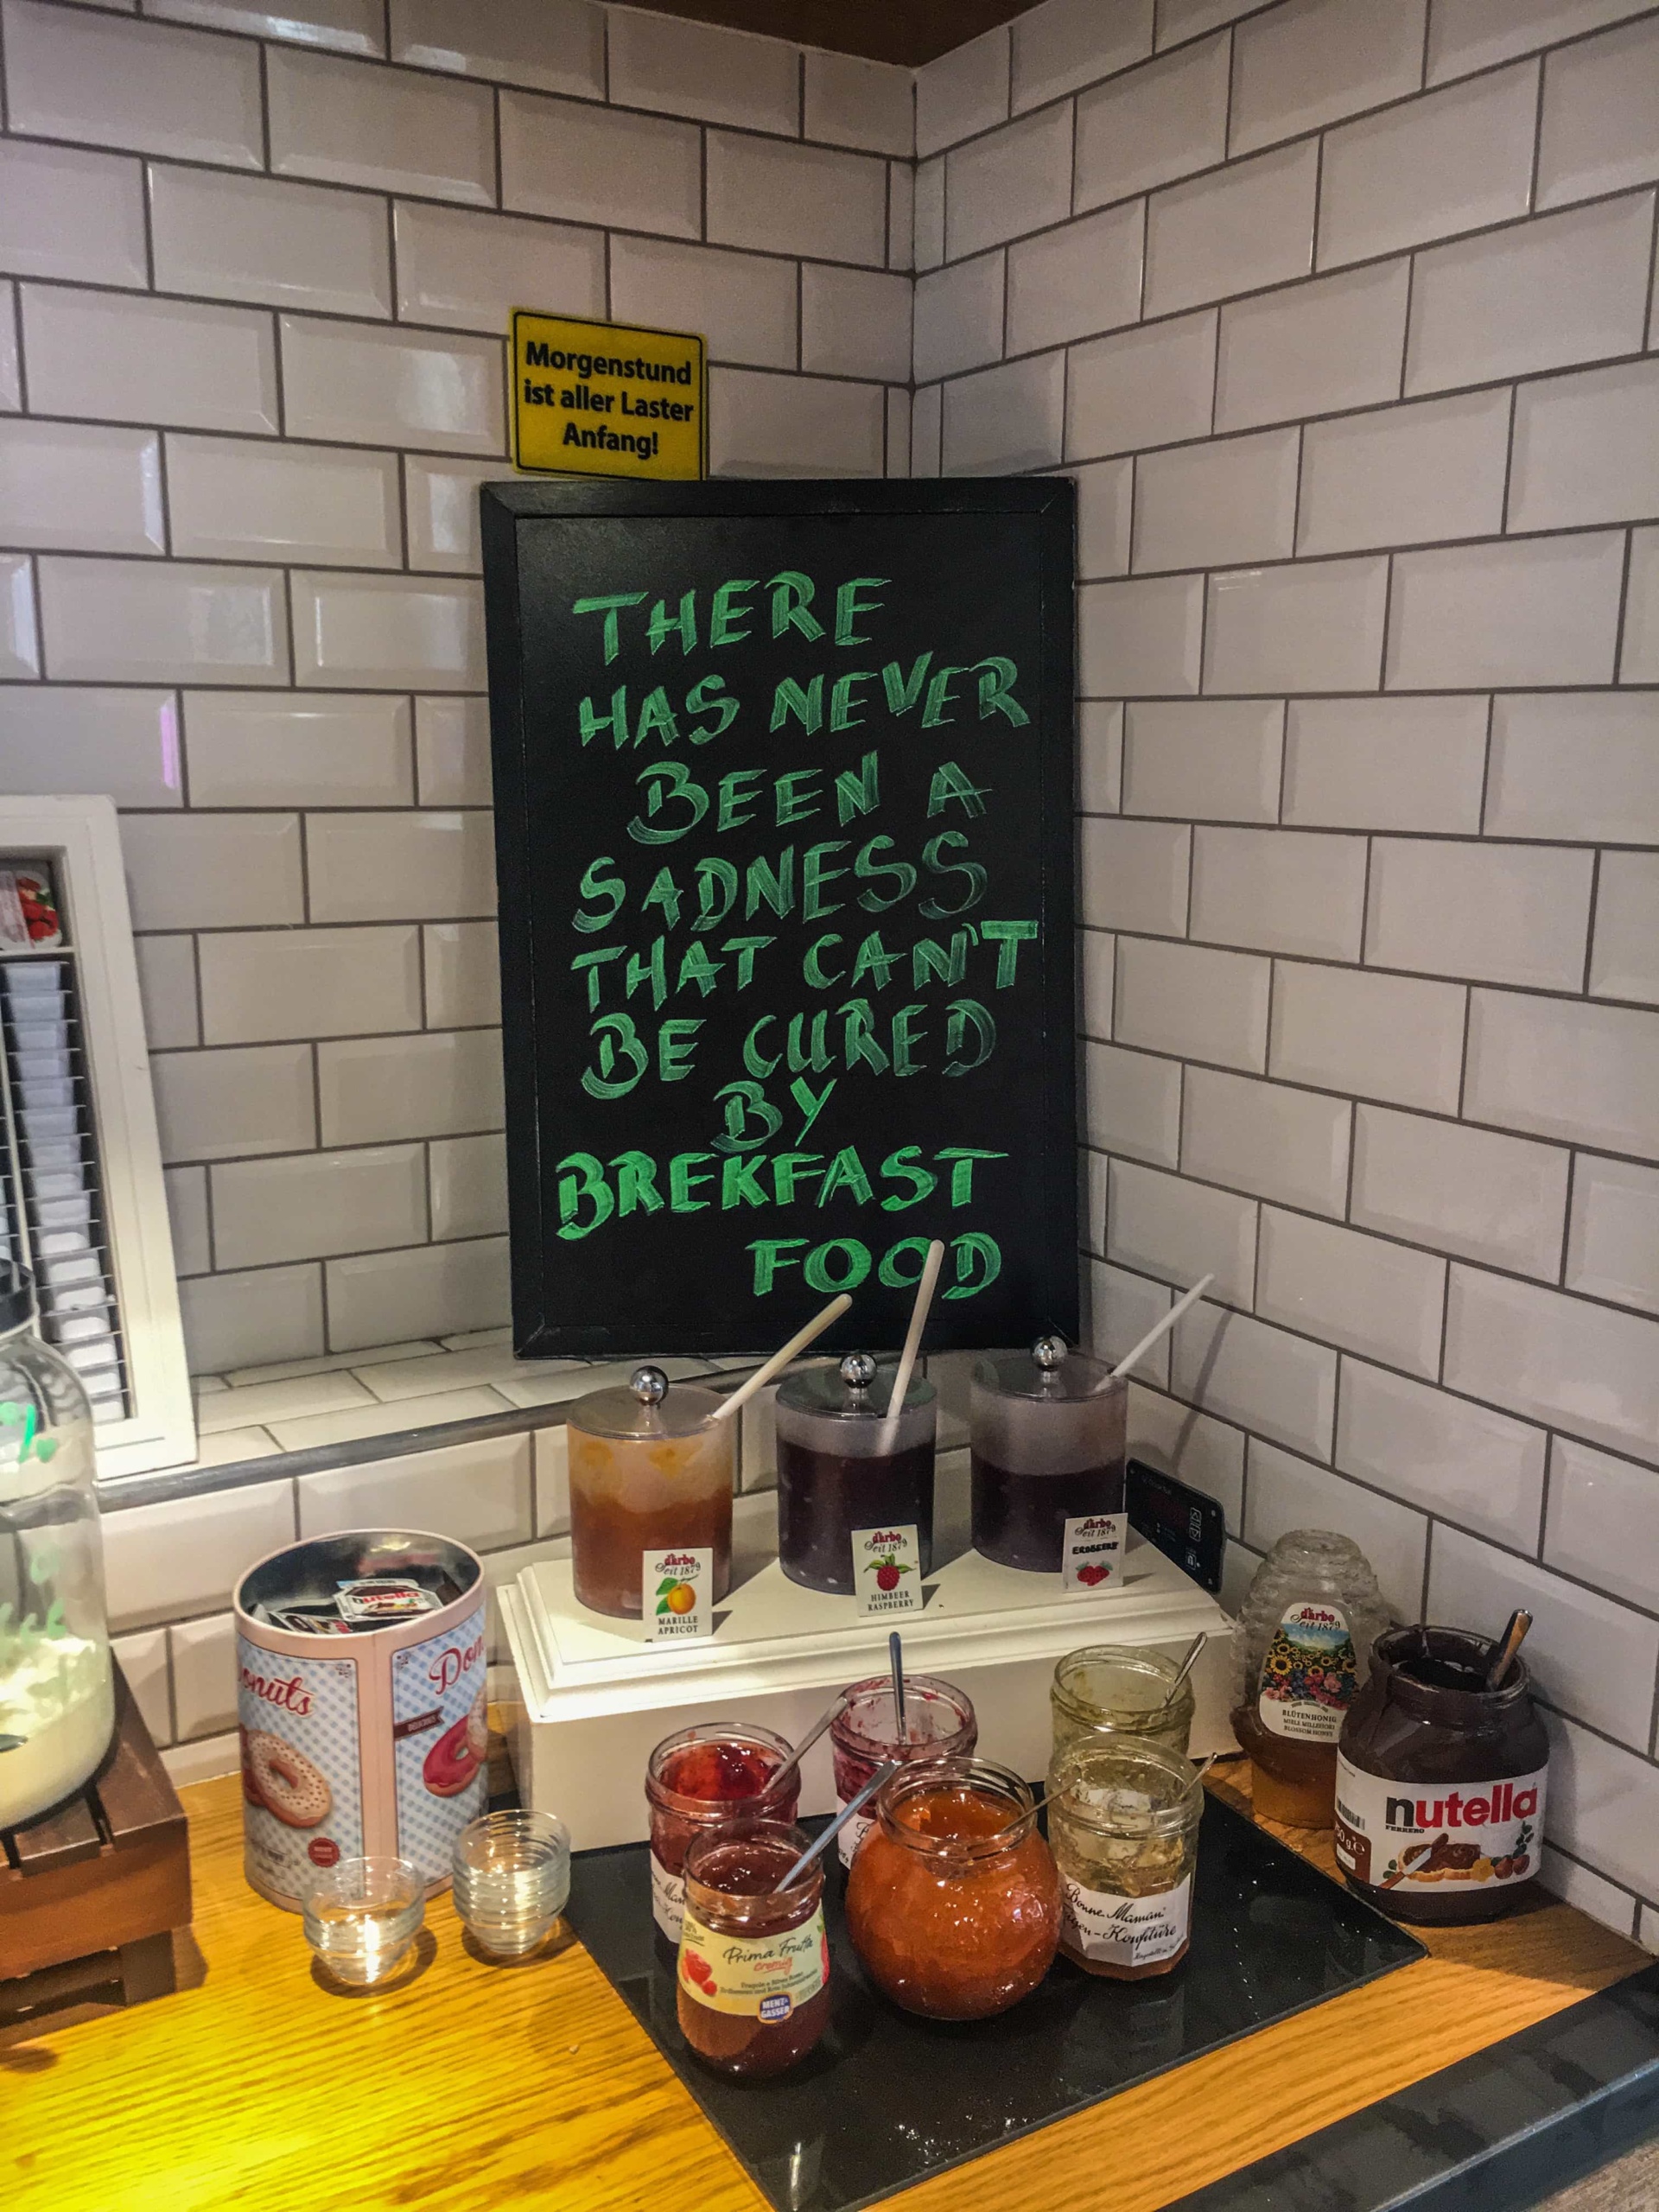 Morgenstund
ist aller Laster
Anfang!
THERE
HAS NEVER
BEEN A
SADNESS
THAT CAN'T
BE CURED
BY
BREKFAST
FOOD
darbo
Seit 1879
MARILLE
APRICOT
darbo
Seit 1879
HIMBEER
RASPBERRY
darbo
Seit 1879
ERDBEERE
darbo
Seit 1879
BLÜTENHONIG
MIELE MILLEFIORI
BLOSSOM HONEY
nutella
onuts
Don
nutella
FERRERO
Bonne Maman
Konfitüre
Prima Frutta
cremosa
MENZ&
GASSER